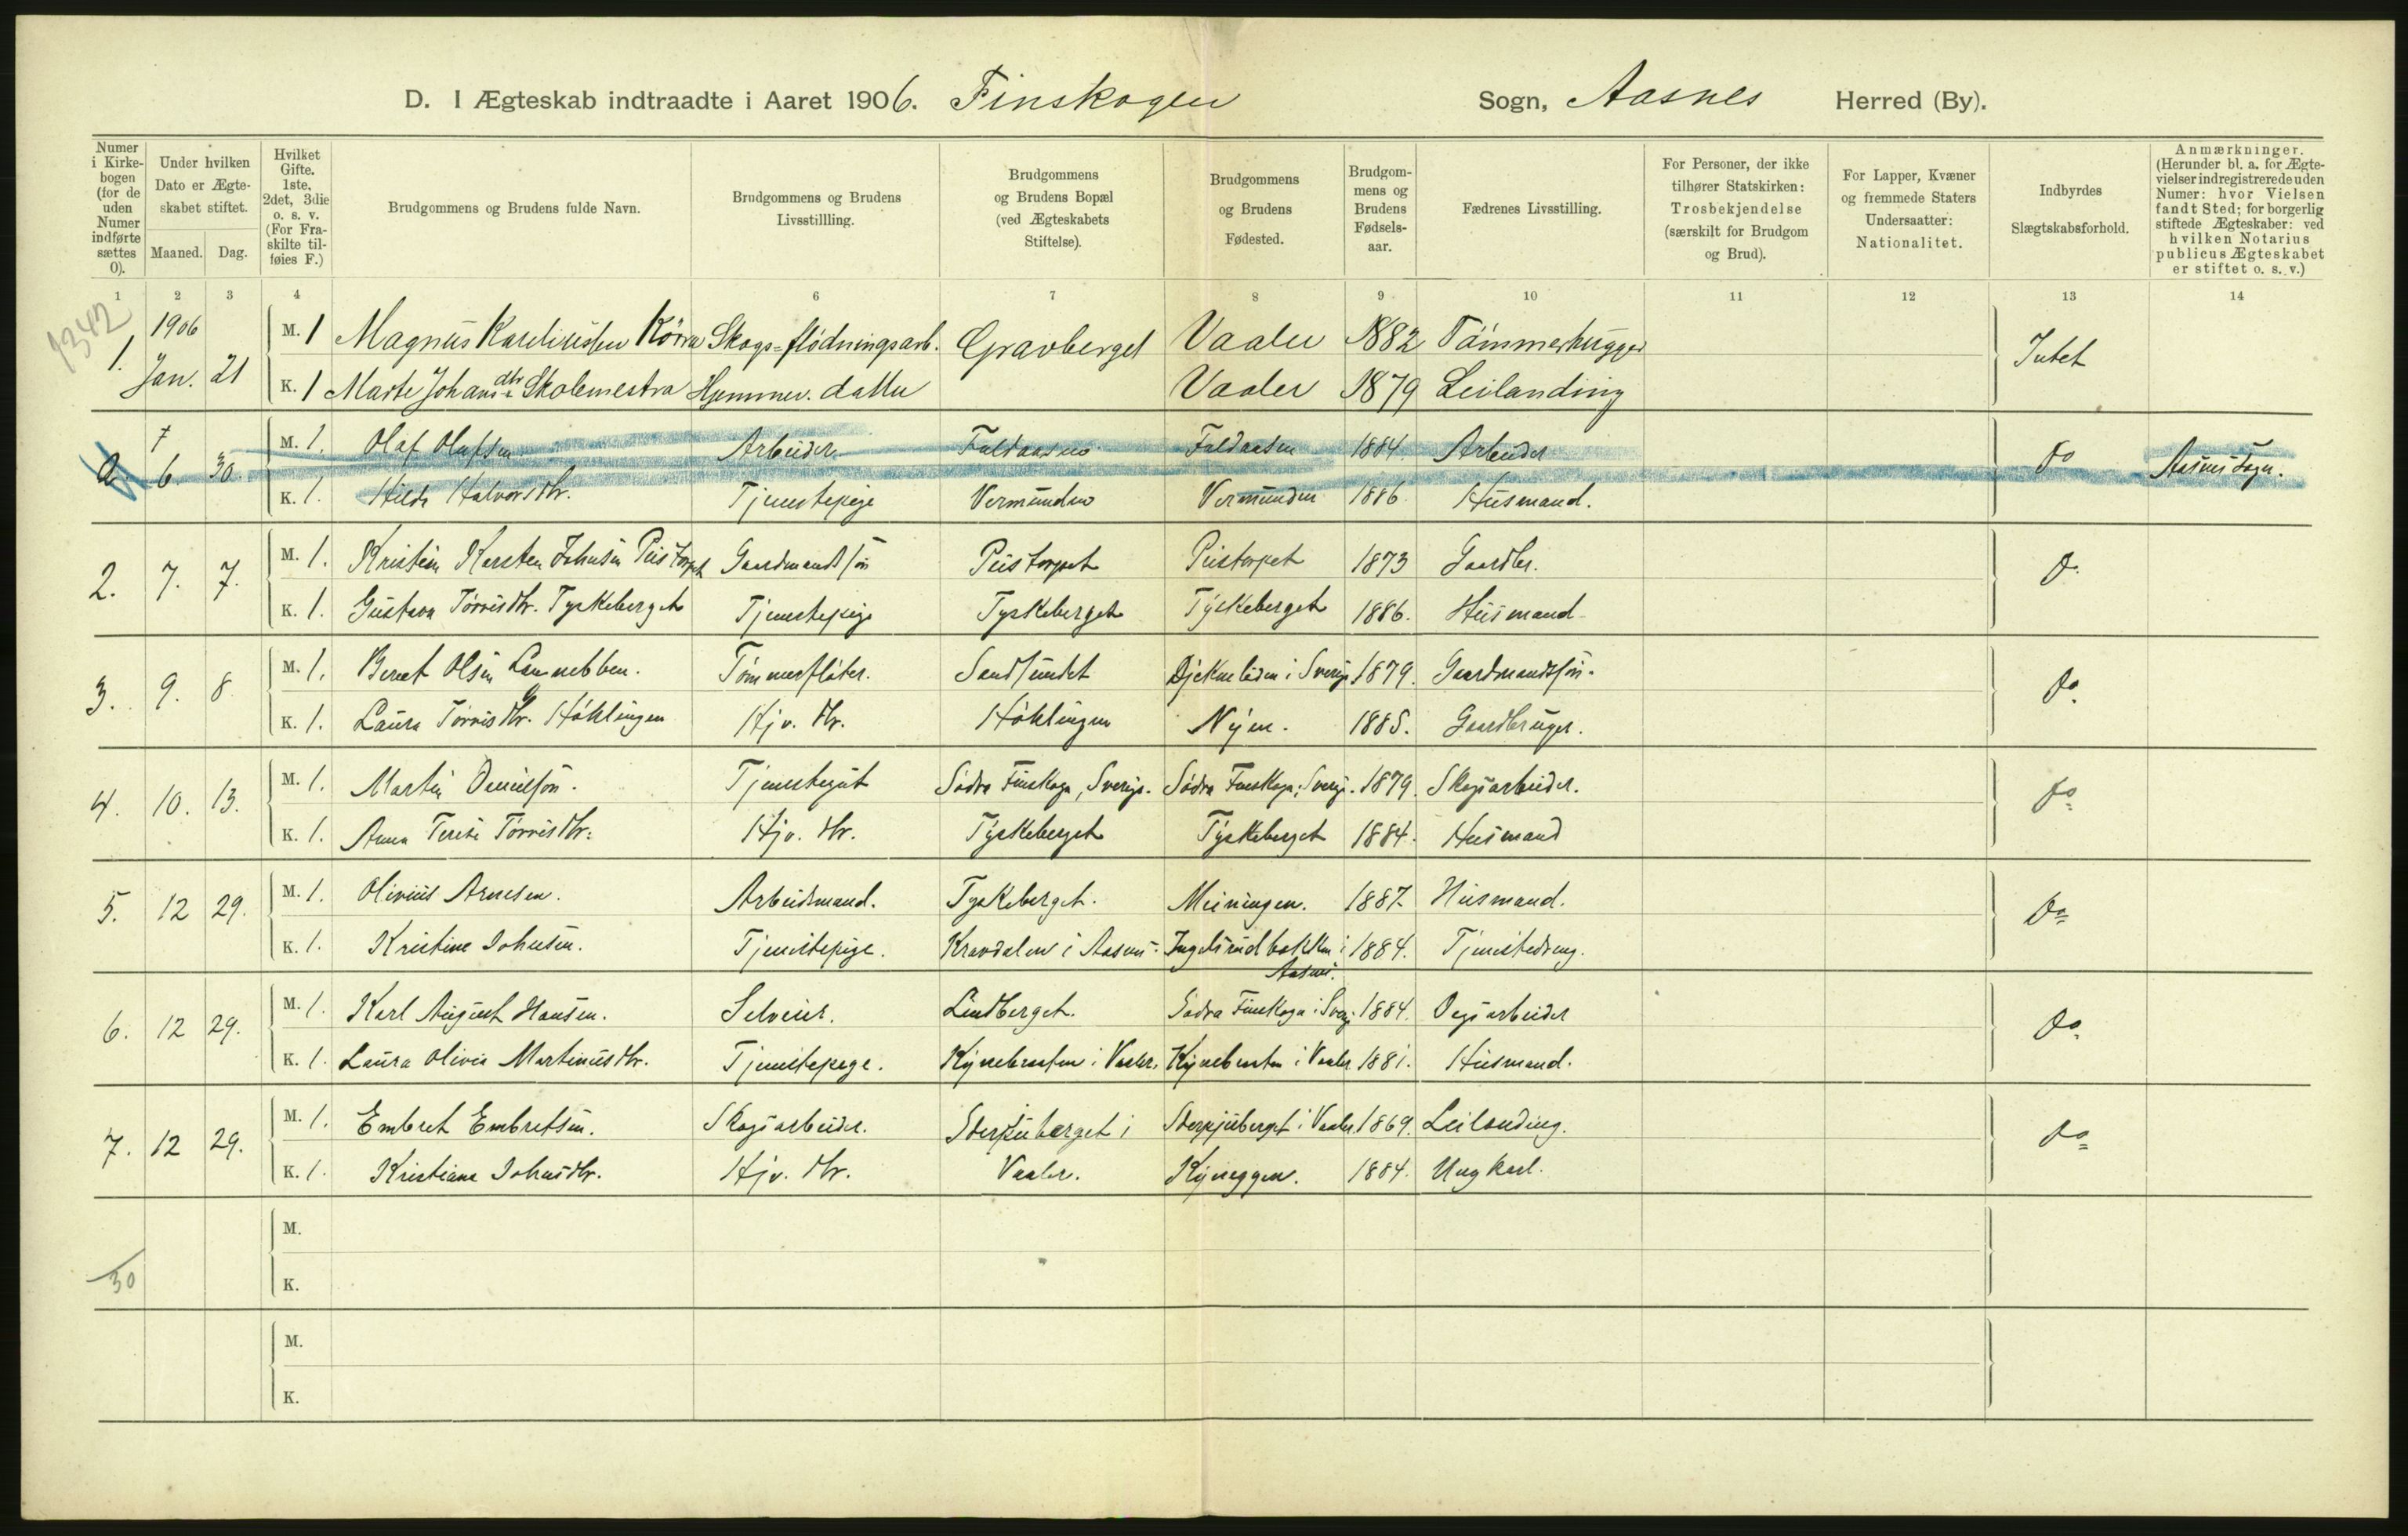 D. I Ægteskab indtraadte i Aaret 1906. Finskogen Sogn, Aasnes Herred (By).
Numer i Kirkebogen (for de uden Numer indførte sættes 0).
Under hvilken Dato er Ægteskabet stiftet.
Maaned. Dag.
Hvilket Gifte. 1ste, 2det, 3die o. s. v. (For Fraskilte tilføies F.)
Brudgommens og Brudens fulde Navn.
Brudgommens og Brudens Livsstillling.
Brudgommens og Brudens Bopæl (ved Ægteskabets Stiftelse).
Brudgommens og Brudens Fødested.
Brudgommens og Brudens Fødselsaar.
Fædrenes Livsstilling.
For Personer, der ikke tilhører Statskirken: Trosbekjendelse (særskilt for Brudgom og Brud).
For Lapper, Kvæner og fremmede Staters Undersaatter: Nationalitet.
Indbyrdes Slægtskabsforhold.
Anmærkninger. (Herunder bl. a. for Ægtevielser indregistrerede uden Numer: hvor Vielsen fandt Sted; for borgerlig stiftede Ægteskaber: ved hvilken Notarius publicus Ægteskabet er stiftet o. s. v.)
1 2 3 4 6 7 8 9 10 11 12 13 14
1342
1906
1. Jan. 21 M. 1 Magnus Skogs=flödningsarb. Gravberget Vaaler 1882 Tömmerhugger Intet
K. 1 Marte Johansdtr Skolemestra Hjemmev. datter Vaaler 1879 Leilanding
7
2. 6 30. M. 1. Olaf Olafsen Arbeider Faldaasen Faldaasen 1884. Arbeider Do Aasnes Sogn.
K. 1. Hilda Halvorsdtr. Tjenestepige Vermunden Vermunden 1886. Husmand.
2. 7. 7. M. 1. Kristian Karsten Johnsen Peistorpet Gaardmandssøn Peistorpet Peistorpet 1873 Gaardbr. Do.
K. 1. Gustava Törrisdtr. Tyskeberget Tjenestepige Tyskeberget Tyskeberget 1886. Husmand
3. 9. 8 M. 1. Bernt Olsen Tømmerfløter. Sandsundet i Sverige 1879. Gaardmandssøn. Do.
K. 1. Laura Törrisdtr. Höklingen Hjv. dtr. Höklingen Nyen. 1885. Gaardbruger.
4. 10. 13. M. 1. Martin Danielsøn. Tjenestegut Södra Finskoga, Sverige. Södra Finskoga, Sverige. 1879. Skogsarbeider. Do
K. 1. Anna Terese Törrisdtr. Hjv. dtr. Tyskeberget Tyskeberget 1884. Husmand
5. 12 29. M. 1. Olivius Arnesen. Arbeidsmand. Tyskeberget. Meiningen. 1887 Husmand. Do
K. 1. Kristine Johnsen. Tjenestepige. Kravdalen i Aasnes. Ingelsrudbakken i 1884. Tjenestedreng.
Aasnes.
6. 12 29. M. 1. Karl August Hansen. Selveier. Lindberget. Södra Finskoga i Sverige 1884. Vegsarbeider Do.
K. 1. Laura Olivia Martinusdtr. Tjenestepige. Kynebraaten i Vaaler. Kynebraaten i Vaaler 1881. Husmand.
7. 12 29. M. 1. Embret Embretsen. Skogsarbeider. Sterpuberget i Sterpjuberget i Vaaler 1869. Leilanding. Do
K. 1. Kristiane Johnsdtr. Hjv. dtr. Vaaler. Kyneggen. 1884. Ungkarl.
M.
30 K.
M.
K.